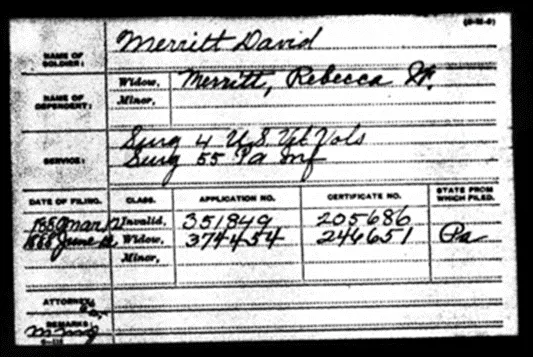 NAME OF SOLDIER: Merritt David
NAME OF DEPENDENT: Widow, Merritt, Rebecca W.
Minor,
SERVICE: Surg 4 U.S. Vet Vols
Surg 55 Pa Inf
DATE OF FILING. CLASS. APPLICATION NO. CERTIFICATE NO. STATE FROM WHICH FILED.
1880 Mar Invalid, 351849 205686
1888 June Widow, 374454 246651 Pa
Minor,
ATTORNEY:
REMARKS: